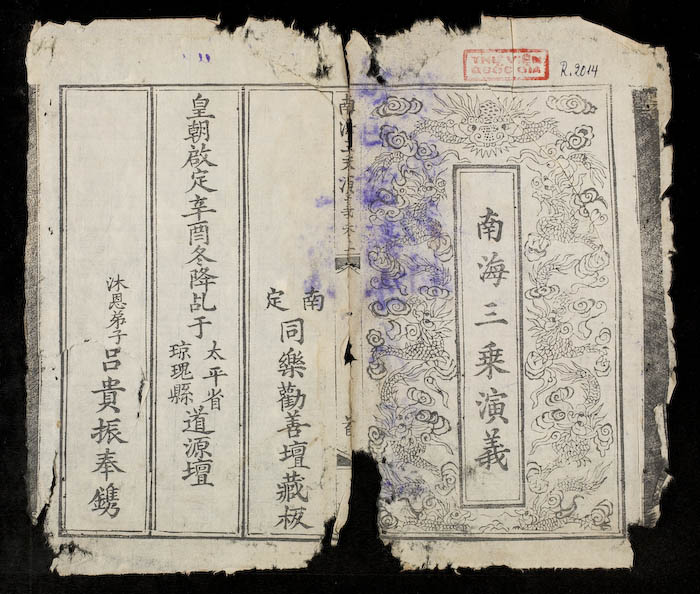 THƯ VIỆN
QUỐC GIA
R.2014
南海三乘演義
南海三乘演義
南定
同樂勸善壇藏板
皇朝啟定辛酉冬降乩于
太平省
琼瑰縣
道源壇
沐恩弟子
吕貴振奉鐫